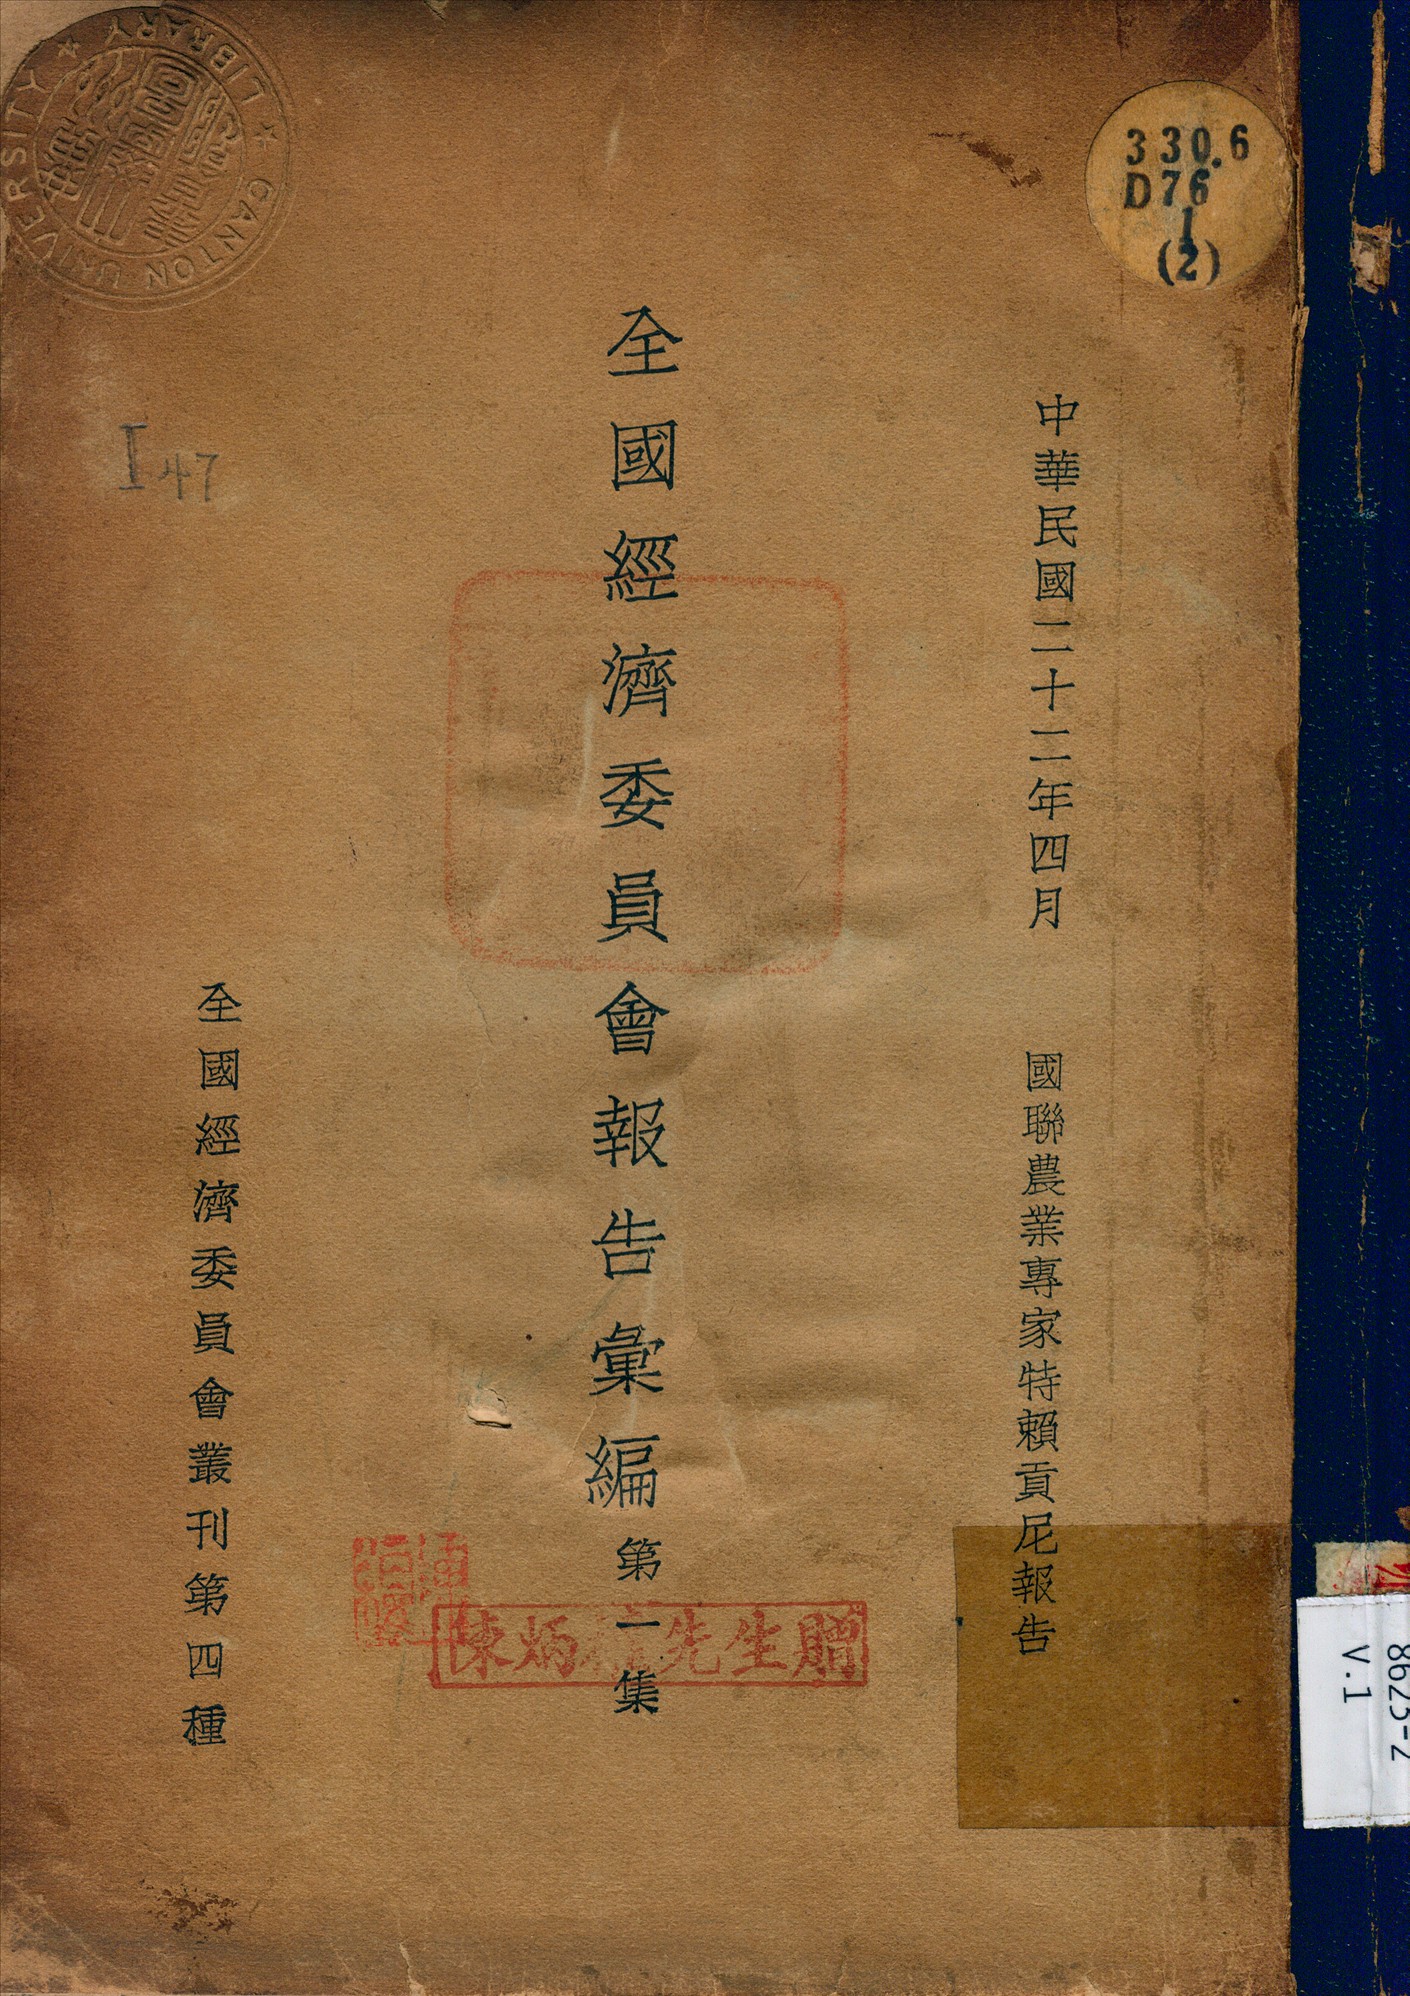 中華民國二十二年四月
國聯農業專家特賴貢尼報告
全國經濟委員會報告彙編第一集
全國經濟委員會叢刊第四種
330.6
D76
1
(2)
CANTON UNIVERSITY LIBRARY
I 47
陳炳 先生贈
8625-2
V.1